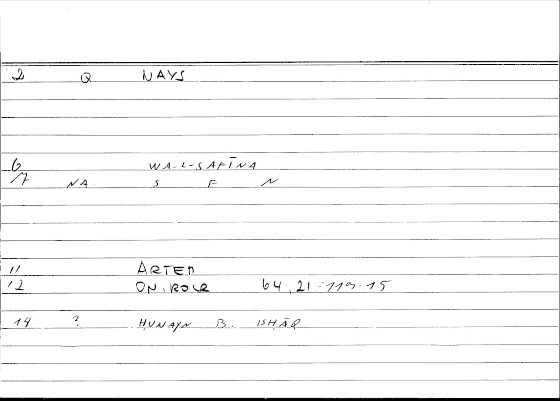 2 Q NAYS
6 WA-L-SAFĪNA
/7 NA S F N
11 ARTEM
12 ON.ROCR 64,21-119.15
14 ? ḤUNAYN B. ISḤĀQ